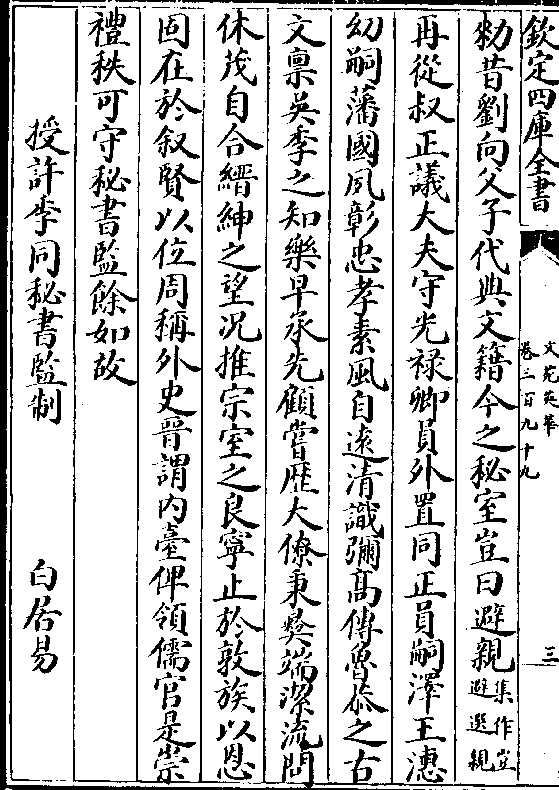 欽定四庫全書
文苑英華
卷三百九十九
三
勑昔劉向父子代典文籍今之秘室豈曰避親集作豈避選親
再從叔正議大夫守光禄卿員外置同正員嗣澤王潓
幼嗣藩國夙彰忠孝素風自逺清識彌髙傳魯恭之古
文禀吳季之知樂早承先顧嘗歴大僚秉彛端潔流問
休茂自合縉紳之望况推宗室之良寧止於敦族以恩
固在於叙賢以位周稱外史晉謂内臺俾領儒官是崇
禮秩可守秘書監餘如故
授許季同秘書監制 白居易